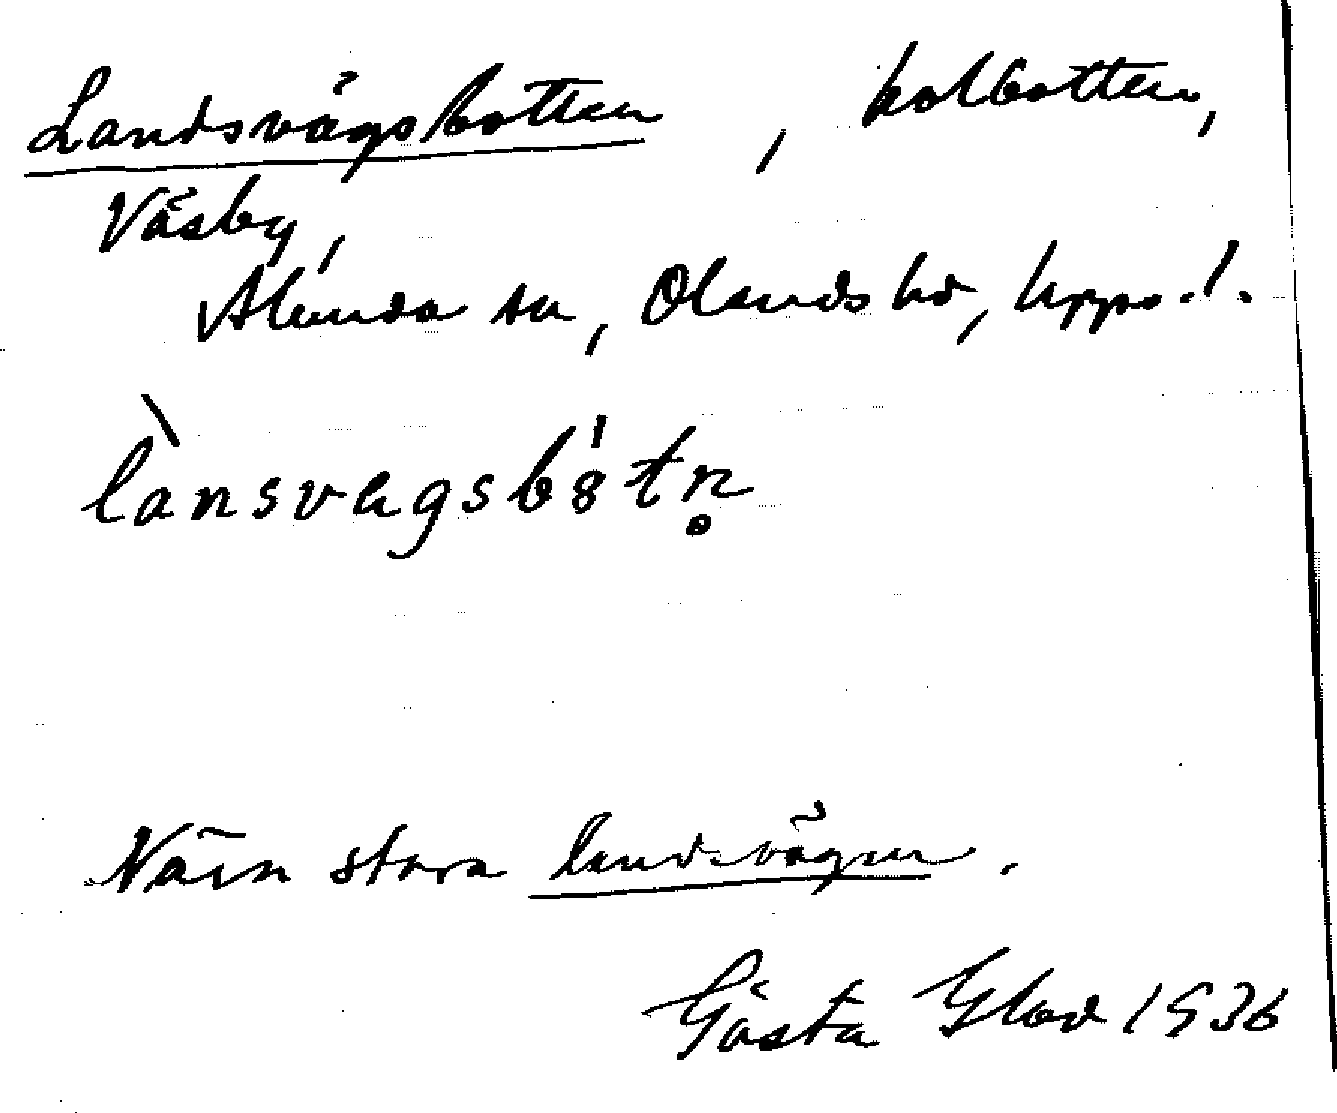 Landsvägsbotten, kolbotten,
Väsby,
Alunda sn, Olands hd, Upps. l.
lànsvagsbȯ́tn̥
Nära stora landsvägen.
Gösta Glad 1936